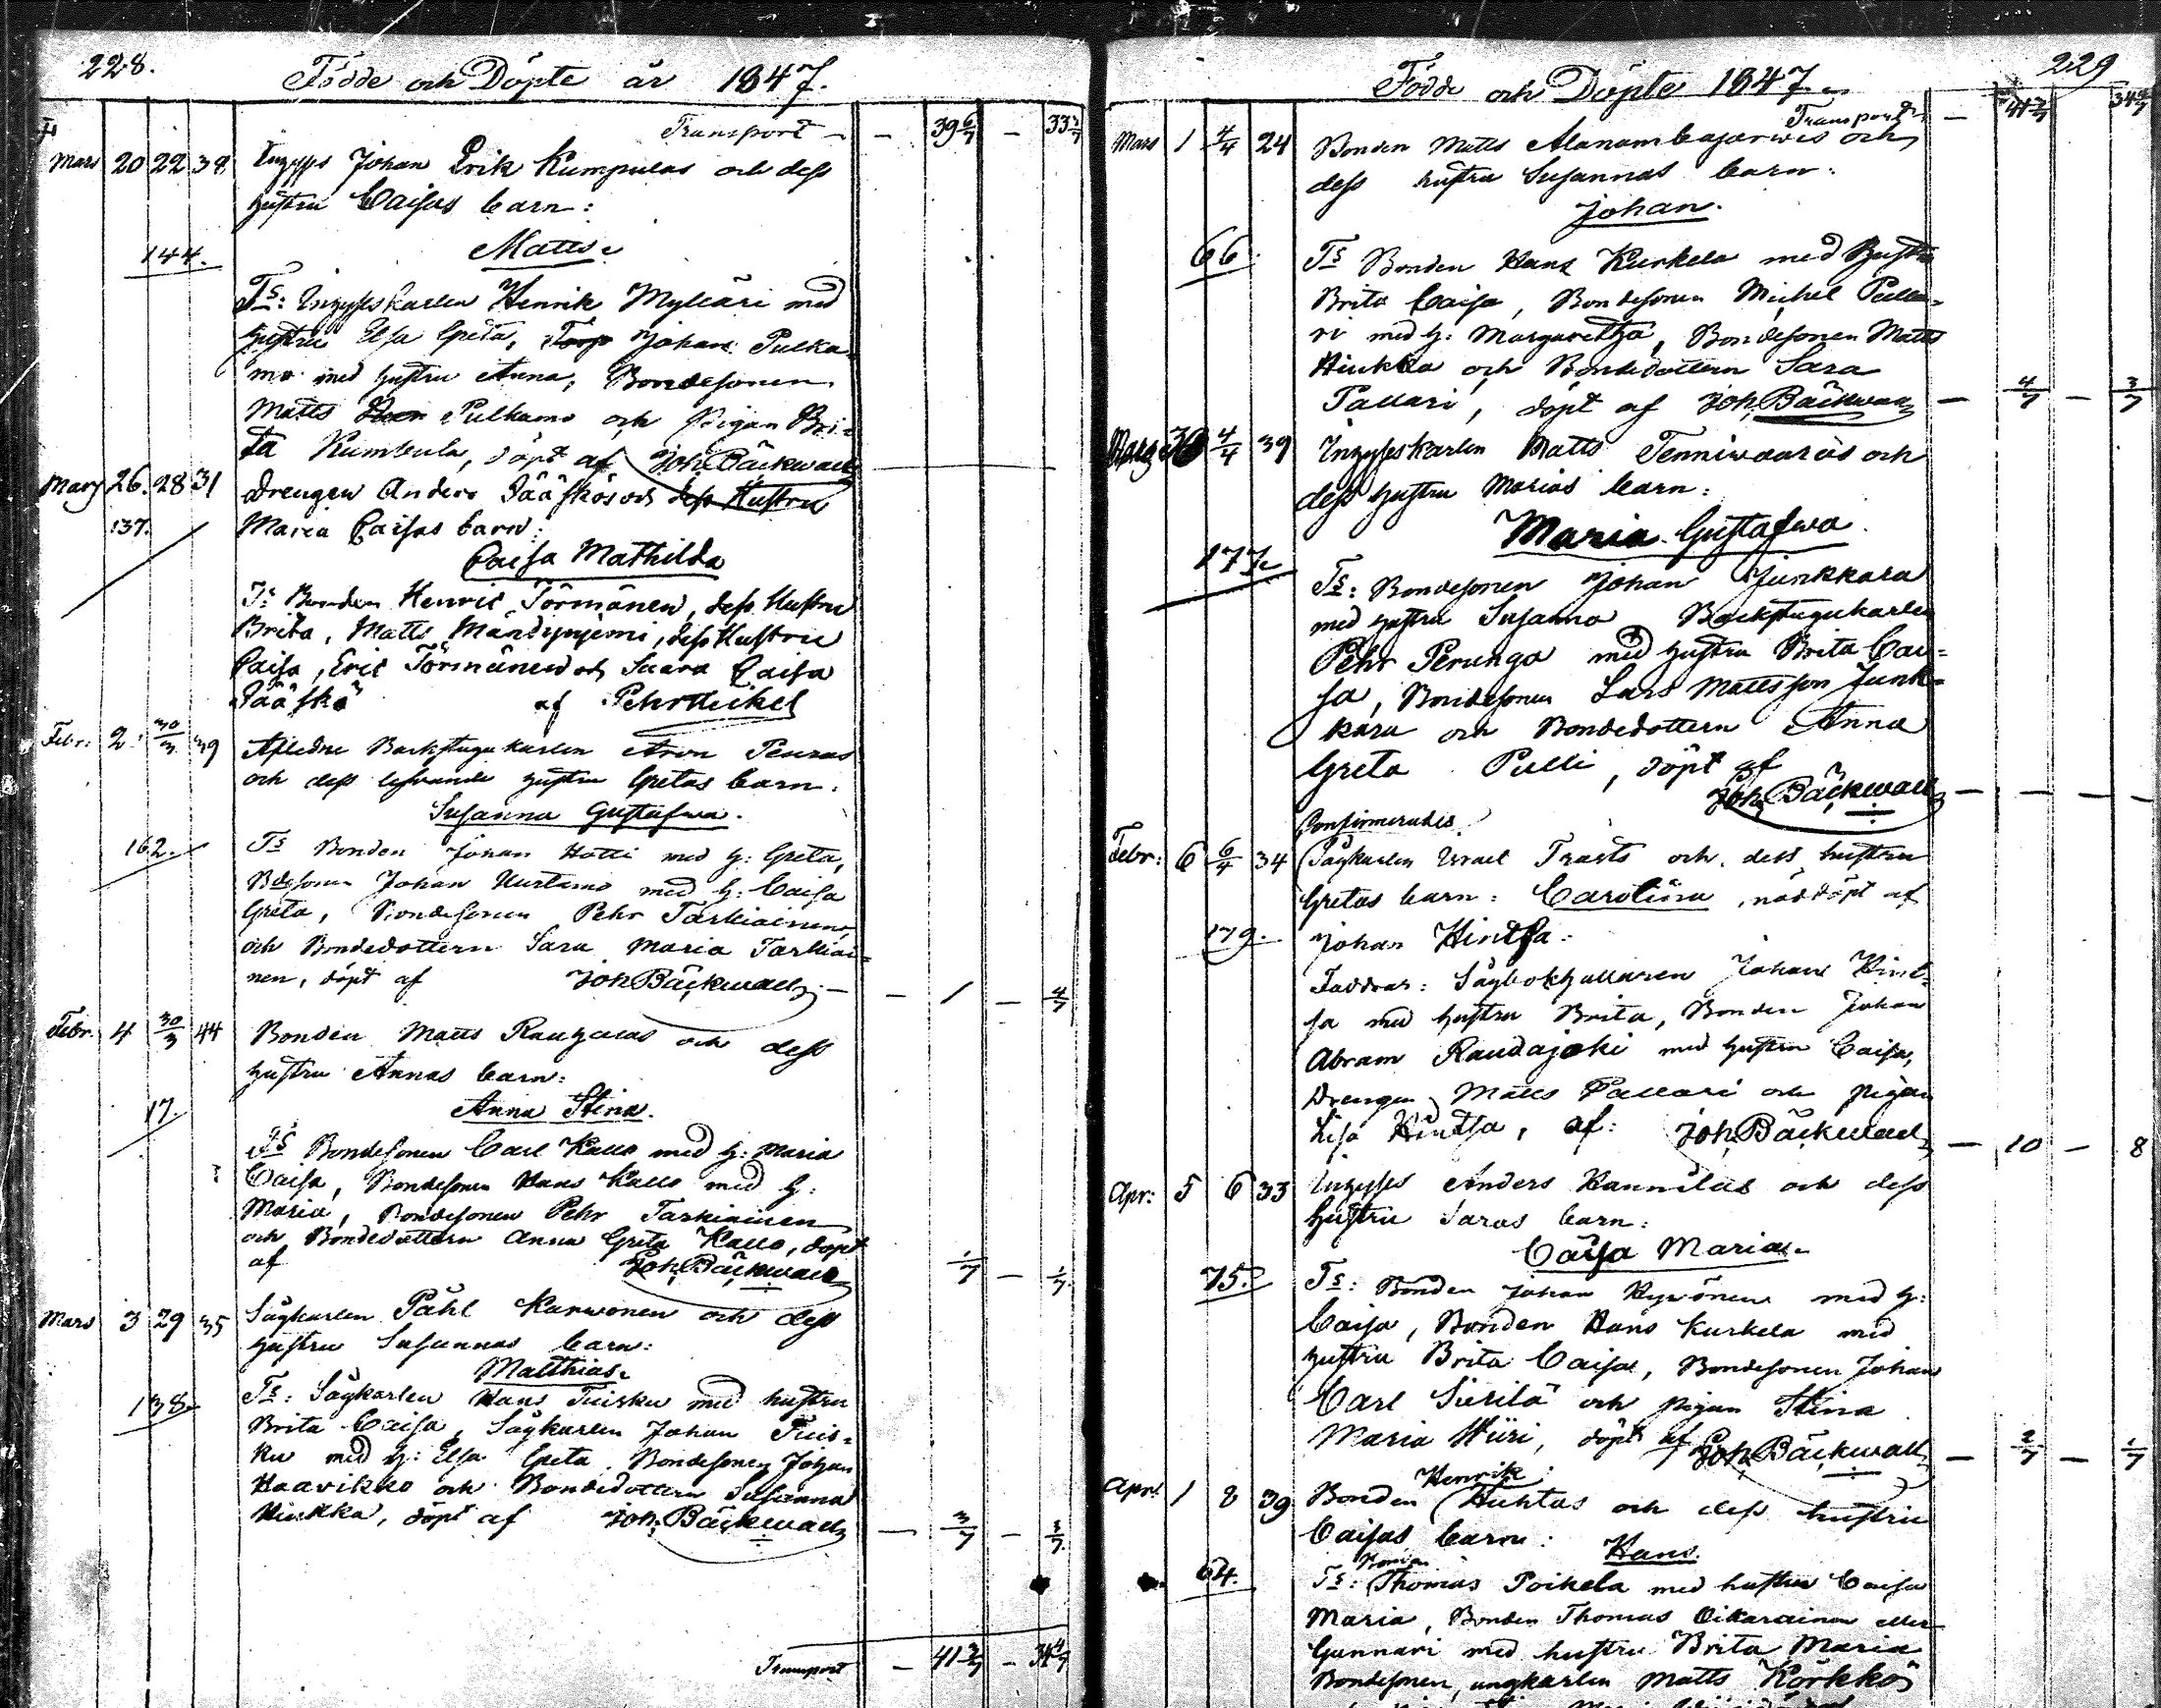 228.
Födde och Döpte år 1847.
Transport — — 39 6/7 — 33 3/7
Mars 20 22 38 Inhyses Johan Erik Kumpulas och dess
hustru Caisas barn:
Matts.
144.
Ts: Inhyseskarlen Henrik Mylläri med
hustru Elsa Greta, Johan Pulka-
mo med hustru Anna, Bondesonen
Matts Pulkamo och Pigan Bri-
ta Kumpula, döpt af Joh. Bäckwall
Mars 26. 28 31 Drengen Anders Jääskös och dess Hustru
137. Maria Caisas barn:
Caisa Mathilda
Ts Bonden Henric Törmänen, dess Hustru
Brita, Matts Mändyniemi, dess Hustru
Caisa, Eric Törmänen och Saara Caisa
Jääskö af Pehr Heikel
Febr. 2. 30/3 39 Afledne Backstugukarlen Aron Peuras
och dess lefvande hustru Gretas barn:
Susanna Gustafwa.
162. Ts Bonden Johan Hotti med h: Greta,
Bdesonen Johan Hurtamo med h: Caisa
Greta, Bondesonen Pehr Tarkiainen
och Bondedottern Sara Maria Tarkiai-
nen, döpt af Joh. Bäckwall — — 1 — 4/7
Febr. 4 30/3 44 Bonden Matts Rauhalas och dess
hustru Annas barn:
17. Anna Stina.
Ts Bondesonen Carl Kallo med h: Maria
Caisa, Bondesonen Hans Kallo med h:
Maria, Bondesonen Pehr Tarkiainen
och Bondedottern Anna Greta Kallo, döpt
af Joh. Bäckwall 1/7 — 1/7
Mars 3 29 35 Sågkarlen Påhl Karwonen och dess
hustru Susannas barn:
Matthias.
138. Ts: Sågkarlen Hans Tuisku med hustru
Brita Caisa, Sågkarlen Johan Tuis-
ku med h: Elsa Greta, Bondesonen Johan
Haavikko och Bondedottern Susanna
Hiukka, döpt af Joh. Bäckwall — 3/7 — 3/7
Transport — 41 3/7 — 34 4/7
229
Födde och Döpte 1847.
Transport — 41 3/7 34 4/7
Mars 1 4/4 24 Bonden Matts Alanambajarwis och
dess hustru Susannas barn:
Johan.
66. Ts Bonden Hans Kurkela med Hustru
Brita Caisa, Bondesonen Michel Palla-
ri med h: Margaretha, Bondesonen Matts
Hiukka och Bondedottern Sara
Pallari, döpt af Joh. Bäckwall — 4/7 — 3/7
Mars 4/4 39 Inhyseskarlen Matts Tenniwaaras och
dess hustru Marias barn:
Maria Gustafwa.
177. Ts: Bondesonen Johan Junkkara
med hustru Susanna Backstugukarlen
Pehr Perunga med hustru Brita Cai-
sa, Bondesonen Lars Mattsson Junk-
kara och Bondedottern Anna
Greta Pulli, döpt af
Joh. Bäckwall — — — —
Confirmerades
Febr: 6 6/4 34 Sågkarlen Israel Trasts och dess hustru
Gretas barn: Carolina, nöddöpt af
179. Johan Hintsa:
Faddrar: Sågbokhållaren Johan Hint-
sa med hustru Brita, Bonden Johan
Abram Raudajoki med hustru Caisa,
Drengen Matts Pallari och pigan
Lisa Hintsa, af: Joh. Bäckwall — 10 — 8
Apr: 5 6 33 Inhyses Anders Hannilas och dess
hustru Saras barn:
Caisa Maria.
75. Ts: Bonden Johan Hyvönen med h:
Caisa, Bonden Hans Kurkela med
hustru Brita Caisa, Bondesonen Johan
Carl Sierilä och pigan Stina
Maria Wiiri, döpt af Joh. Bäckwall — 2/7 — 1/7
Henrik
Apr: 1 8 39 Bonden Huhtas och dess hustru
Caisas barn: Hans.
64. Ts: Bonden Thomas Poikela med hustru Caisa
Maria, Bonden Thomas Oikarainen eller
Gunnari med hustru Brita Maria
Bondesonen, ungkarlen Matts Körkkö